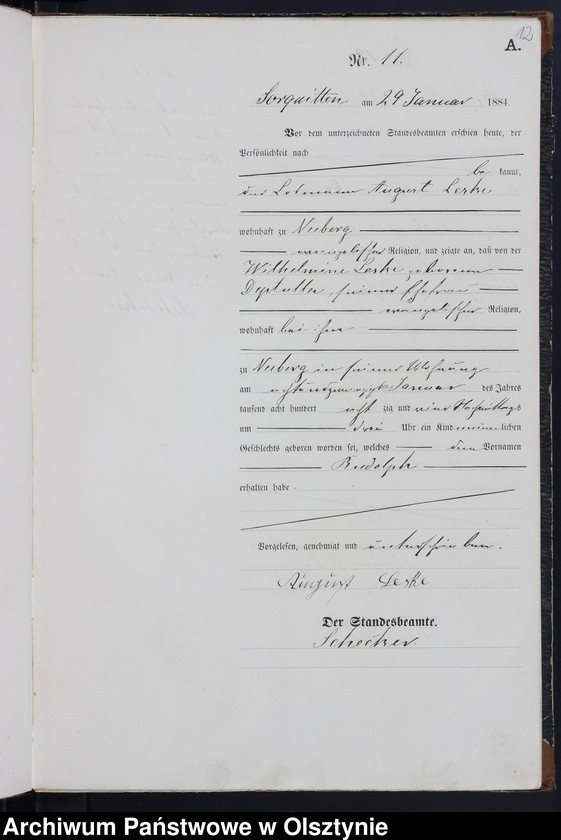 12
A.
Nr. 11.
Sorquitten am 29 Januar 1884.
Vor dem unterzeichneten Standesbeamten erschien heute, der
Persönlichkeit nach
be kannt,
der Losmann August Leske
wohnhaft zu Neuberg
evangelischer Religion, und zeigte an, daß von der
Wilhelmine Leske geborenen
Deptulla, seiner Ehefrau
evangelischer Religion,
wohnhaft bei ihm
zu Neuberg in seiner Wohnung
am achtundzwanzigsten Januar des Jahres
tausend acht hundert acht zig und vier Nachmittags
um drei Uhr ein Kind männ lichen
Geschlechts geboren worden sei, welches den Vornamen
Rudolph
erhalten habe.
Vorgelesen, genehmigt und unterschrieben.
August Leske
Der Standesbeamte.
Archiwum Państwowe w Olsztynie